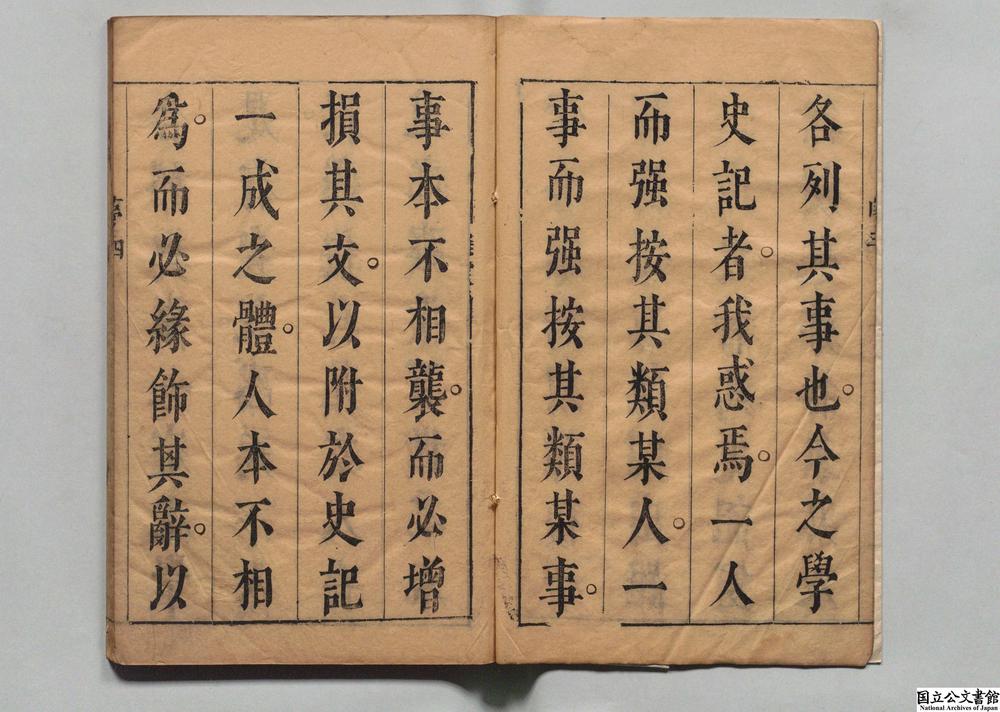 各列其事也。今之學
史記者。我惑焉。一人
而强按其類某人。一
事而强按其類某事。
事本不相襲。而必增
損其文。以附於史記
一成之體。人本不相
爲。而必緣飾其辭。以
四
国立公文書館
National Archives of Japan